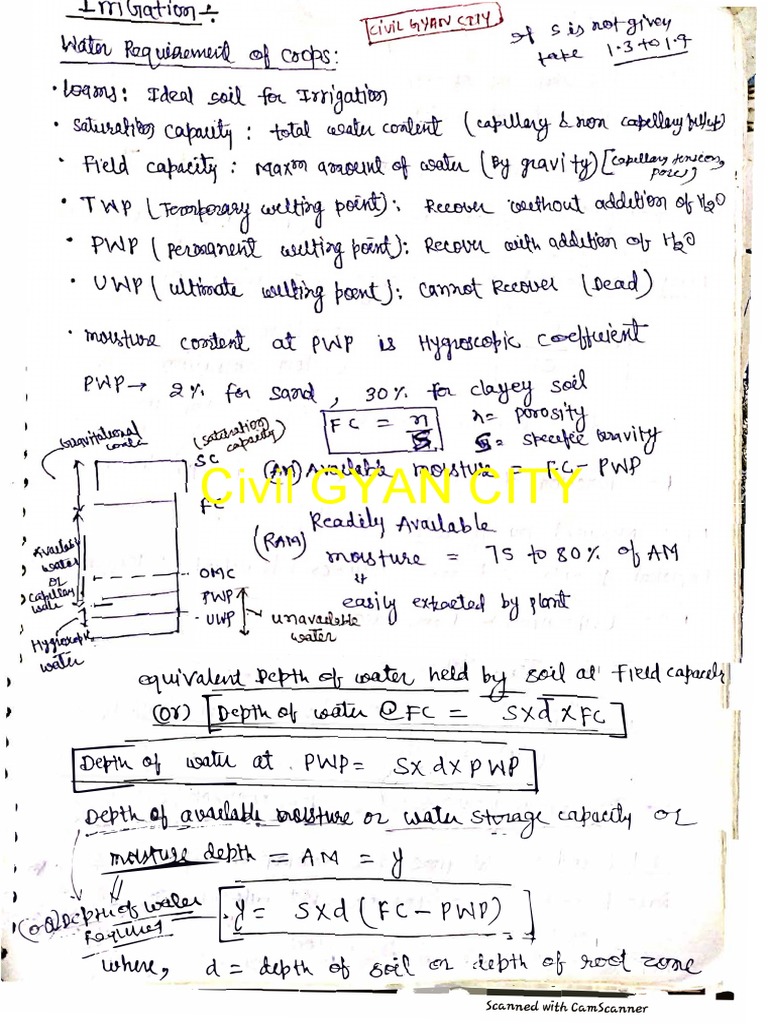 Irrigation :-
CIVIL GYAN CITY
If S is not given
take 1.3 to 1.9
Water Requirement of Crops:
• Loams: Ideal soil for Irrigation
• Saturation Capacity: total water content (capillary & non capillary
• Field capacity: Maxm amount of water (By gravity) [capillary tension, pores]
• TWP (Temporary wilting point): Recover without addition of H2O
• PWP (permanent wilting point): Recover with addition of H2O
• UWP (ultimate wilting point): Cannot Recover (Dead)
• moisture content at PWP is Hygroscopic Coefficient
PWP → 2% for sand, 30% for clayey soil
FC = n/S
n = porosity
S = specific Gravity
(AM) Available moisture = FC - PWP
Civil GYAN CITY
Gravitational water
(saturation capacity)
SC
FC
Available water or capillary water
OMC
PWP
UWP
unavailable water
Hygroscopic water
(RAM) Readily Available
moisture = 75 to 80% of AM
easily extracted by plant
equivalent Depth of water held by soil at Field capacity
(or) Depth of water @ FC = S x d x FC
Depth of water at PWP = S x d x PWP
Depth of available moisture or water storage capacity or
moisture depth = AM = y
(or) Depth of water
Required
y = S x d (FC - PWP)
where, d = depth of soil or depth of root zone
Scanned with CamScanner